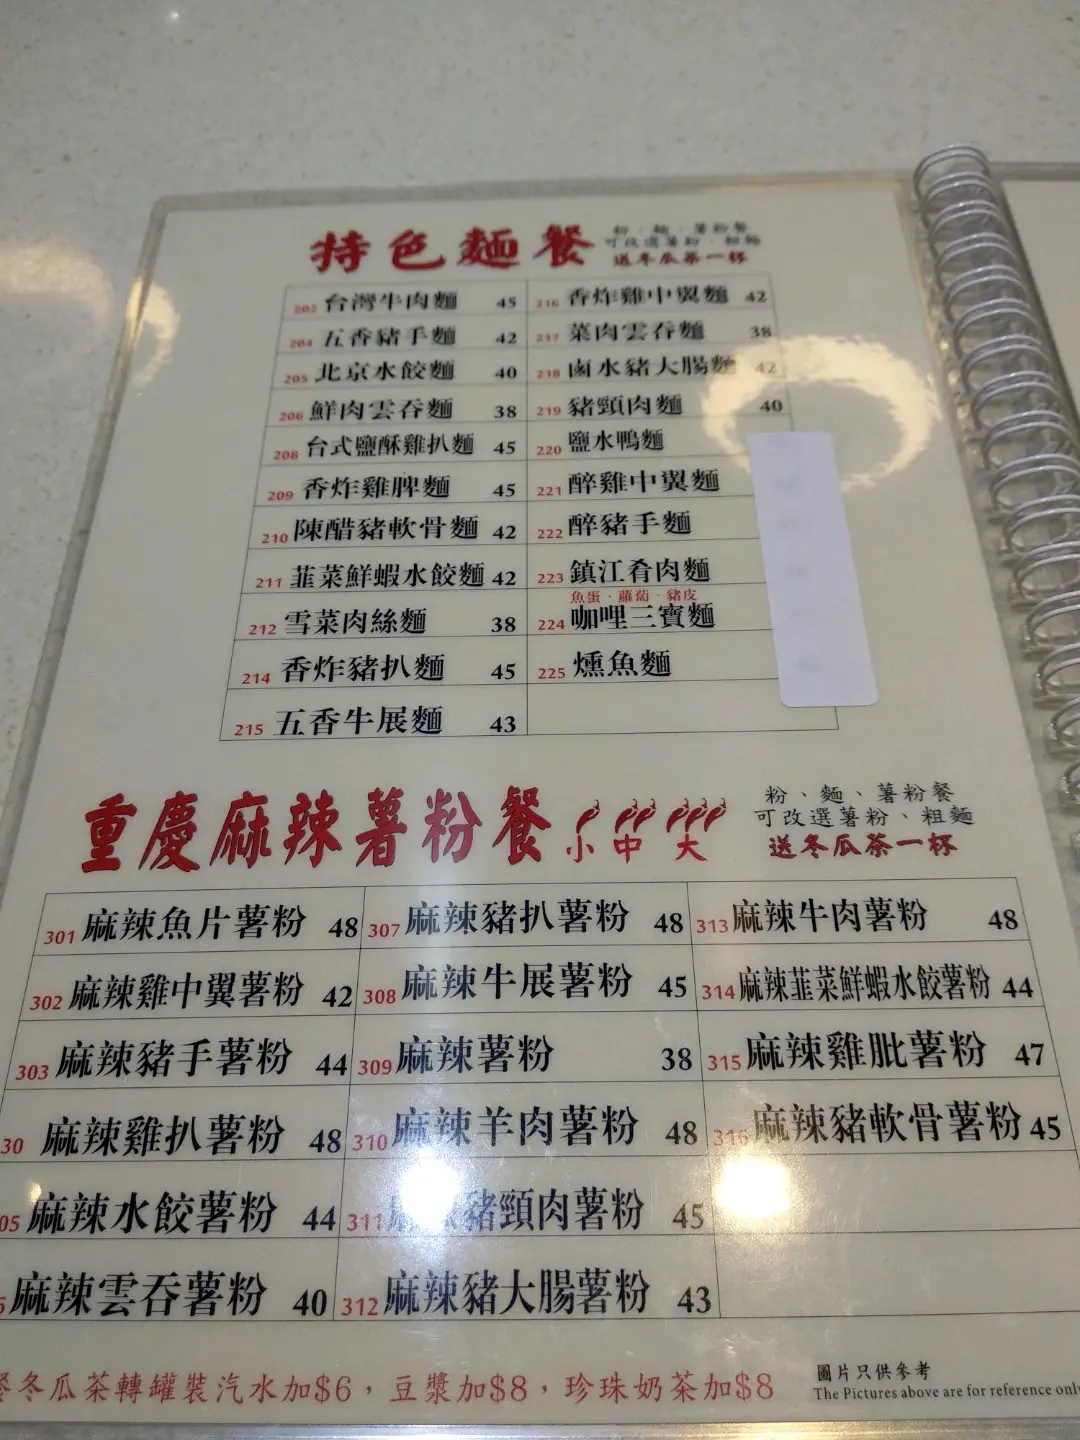 特色麵餐
粉、麵、薯粉餐
可改選薯粉、粗麵
送冬瓜茶一杯
202 台灣牛肉麵 45
204 五香豬手麵 42
205 北京水餃麵 40
206 鮮肉雲吞麵 38
208 台式鹽酥雞扒麵 45
209 香炸雞脾麵 45
210 陳醋豬軟骨麵 42
211 韮菜鮮蝦水餃麵 42
212 雪菜肉絲麵 38
214 香炸豬扒麵 45
215 五香牛展麵 43
216 香炸雞中翼麵 42
217 菜肉雲吞麵 38
218 鹵水豬大腸麵 42
219 豬頸肉麵 40
220 鹽水鴨麵
221 醉雞中翼麵
222 醉豬手麵
223 鎮江肴肉麵
魚蛋、蘿蔔、豬皮
224 咖哩三寶麵
225 燻魚麵
重慶麻辣薯粉餐
小 中 大
粉、麵、薯粉餐
可改選薯粉、粗麵
送冬瓜茶一杯
301 麻辣魚片薯粉 48
302 麻辣雞中翼薯粉 42
303 麻辣豬手薯粉 44
30 麻辣雞扒薯粉 48
05 麻辣水餃薯粉 44
6 麻辣雲吞薯粉 40
307 麻辣豬扒薯粉 48
308 麻辣牛展薯粉 45
309 麻辣薯粉 38
310 麻辣羊肉薯粉 48
311 麻辣豬頸肉薯粉 45
312 麻辣豬大腸薯粉 43
313 麻辣牛肉薯粉 48
314 麻辣韮菜鮮蝦水餃薯粉 44
315 麻辣雞肶薯粉 47
316 麻辣豬軟骨薯粉 45
餐冬瓜茶轉罐裝汽水加$6，豆漿加$8，珍珠奶茶加$8
圖片只供參考
The Pictures above are for reference only